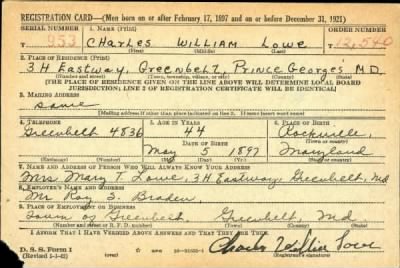 REGISTRATION CARD—(Men born on or after February 17, 1897 and on or before December 31, 1921)
SERIAL NUMBER 1. NAME (Print) ORDER NUMBER
953 CHARLES WILLIAM LOWE 12,540
(First) (Middle) (Last)
2. PLACE OF RESIDENCE (Print)
3H Eastway, Greenbelt, Prince Georges MD.
(Number and street) (Town, township, village, or city) (County) (State)
[THE PLACE OF RESIDENCE GIVEN ON THE LINE ABOVE WILL DETERMINE LOCAL BOARD
JURISDICTION; LINE 2 OF REGISTRATION CERTIFICATE WILL BE IDENTICAL]
3. MAILING ADDRESS
Same
[Mailing address if other than place indicated on line 2. If same insert word same]
4. TELEPHONE 5. AGE IN YEARS 6. PLACE OF BIRTH
Greenbelt 4836 44 Rockville,
DATE OF BIRTH (Town or county)
May 5 1897 Maryland
(Exchange) (Number) (Mo.) (Day) (Yr.) (State or country)
7. NAME AND ADDRESS OF PERSON WHO WILL ALWAYS KNOW YOUR ADDRESS
Mrs Mary T. Lowe, 3H Eastway, Greenbelt, Md
8. EMPLOYER'S NAME AND ADDRESS
Mr Roy S. Braden
9. PLACE OF EMPLOYMENT OR BUSINESS
Town of Greenbelt Greenbelt, Md.
(Number and street or R. F. D. number) (Town) (County) (State)
I AFFIRM THAT I HAVE VERIFIED ABOVE ANSWERS AND THAT THEY ARE TRUE.
D. S. S. Form 1
(Revised 1-1-42) Charles William Lowe